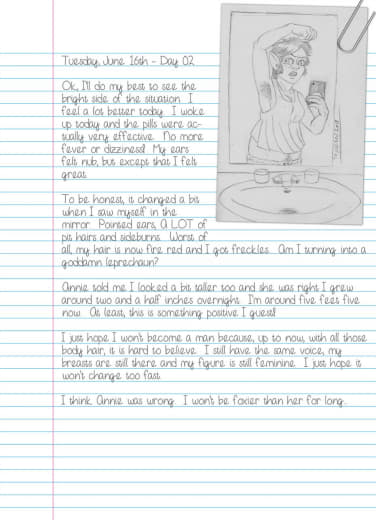 Tuesday, June 16th - Day 02
Ok, I'll do my best to see the
bright side of the situation. I
feel a lot better today. I woke
up today and the pills were ac-
tually very effective. No more
fever or dizziness! My ears
felt nub, but except that I felt
great.
To be honest, it changed a bit
when I saw myself in the
mirror. Pointed ears, A LOT of
pit hairs and sideburns. Worst of
all, my hair is now fire red and I got freckles. Am I turning into a
goddamn leprechaun?
Annie told me I looked a bit taller too and she was right. I grew
around two and a half inches overnight. I'm around five feet five
now. At least, this is something positive I guess!
I just hope I won't become a man because, up to now, with all those
body hair, it is hard to believe. I still have the same voice, my
breasts are still there and my figure is still feminine. I just hope it
won't change too fast.
I think Annie was wrong. I won't be foxier than her for long...